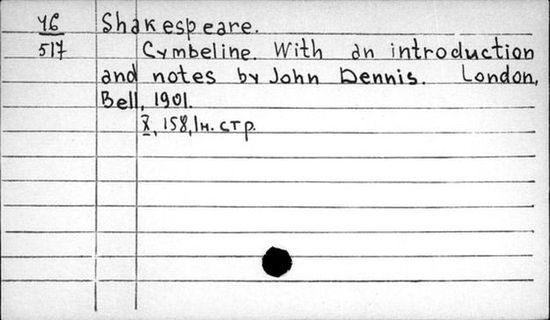 Ч6 Shakespeare.
517 Cymbeline. With an introduction
and notes by John Dennis. London,
Bell, 1901.
X, 158, 1н. стр.